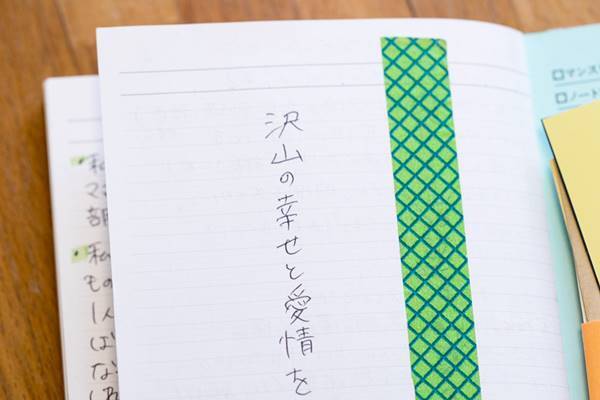 沢山の幸せと愛情を
マンス
ノート
私
マ
私
もの
1人
ば
な